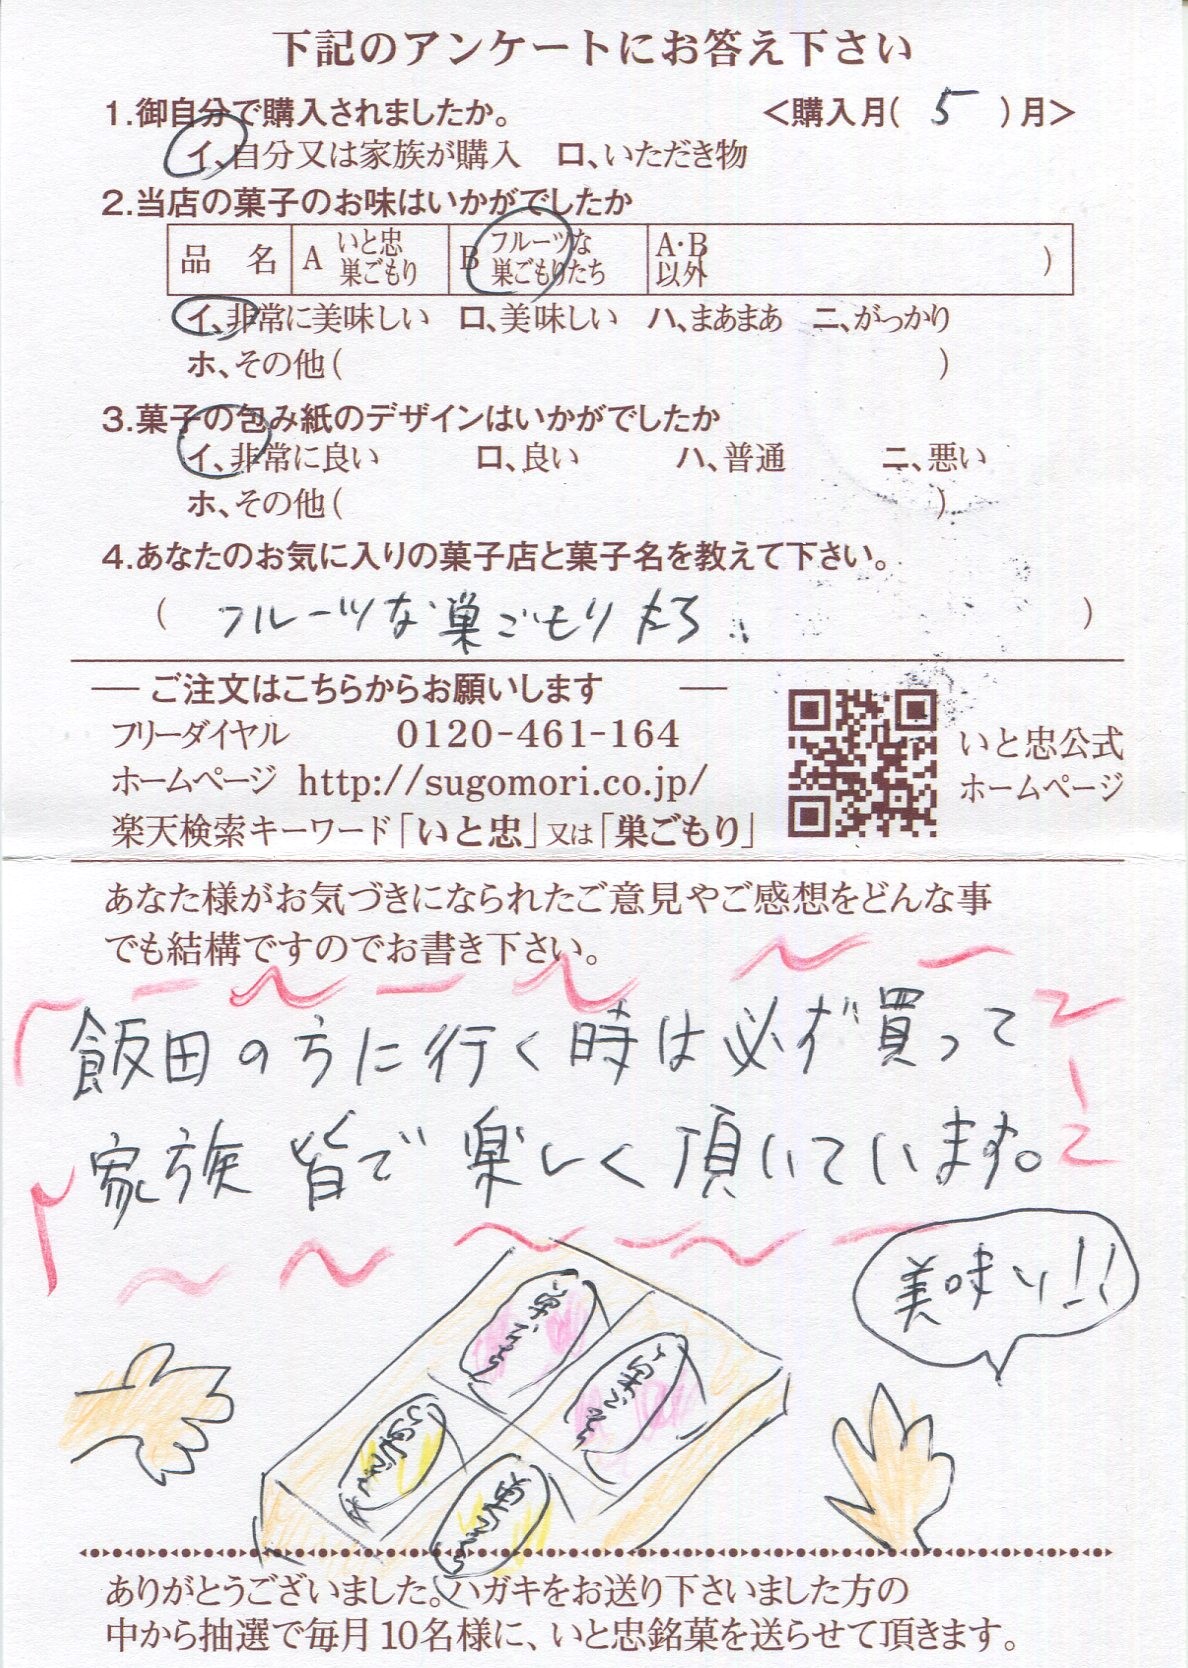 下記のアンケートにお答え下さい
1.御自分で購入されましたか。 <購入月( 5 )月>
イ、自分又は家族が購入 ロ、いただき物
2.当店の菓子のお味はいかがでしたか
品 名 A いと忠 巣ごもり B フルーツな 巣ごもりたち A・B 以外 )
イ、非常に美味しい ロ、美味しい ハ、まあまあ ニ、がっかり
ホ、その他( )
3.菓子の包み紙のデザインはいかがでしたか
イ、非常に良い ロ、良い ハ、普通 ニ、悪い
ホ、その他( )
4.あなたのお気に入りの菓子店と菓子名を教えて下さい。
( フルーツな巣ごもりたち )
― ご注文はこちらからお願いします ―
フリーダイヤル 0120-461-164
ホームページ http://sugomori.co.jp/
楽天検索キーワード「いと忠」又は「巣ごもり」
いと忠公式
ホームページ
あなた様がお気づきになられたご意見やご感想をどんな事
でも結構ですのでお書き下さい。
飯田の方に行く時は必ず買って
家族皆で楽しく頂いています。
美味い!!
巣ごもり
巣ごもり
巣ごもり
巣ごもり
ありがとうございました。ハガキをお送り下さいました方の
中から抽選で毎月10名様に、いと忠銘菓を送らせて頂きます。